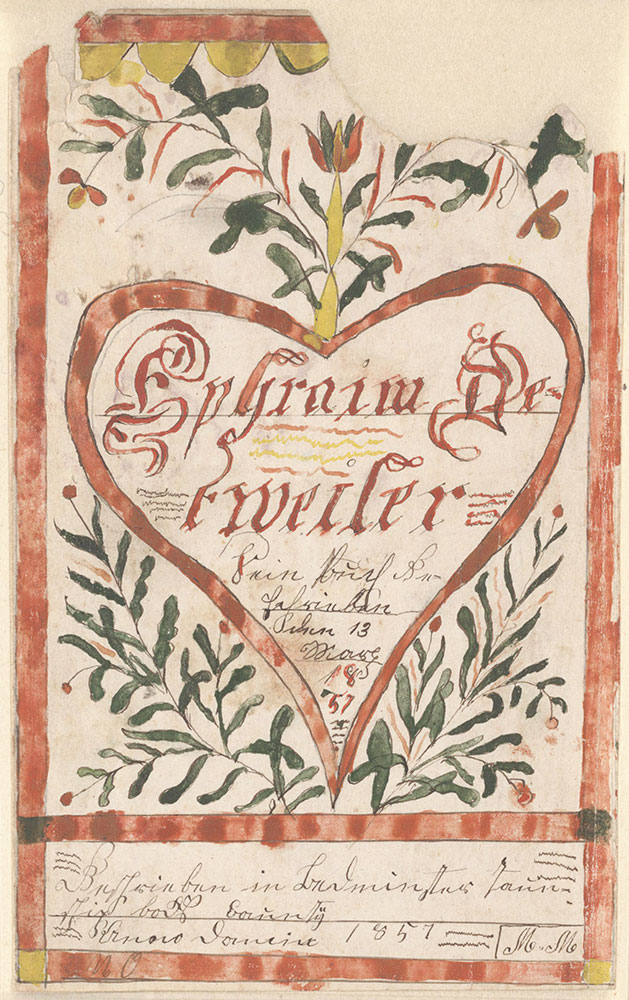 Ephraim De-
tweiler
Sein Buch Ge-
schrieben
Den 13
Marz
18
57
Geschrieben in Bedminster taun-
schip bocks caunty
Anno Domini 1857
M. M
N O